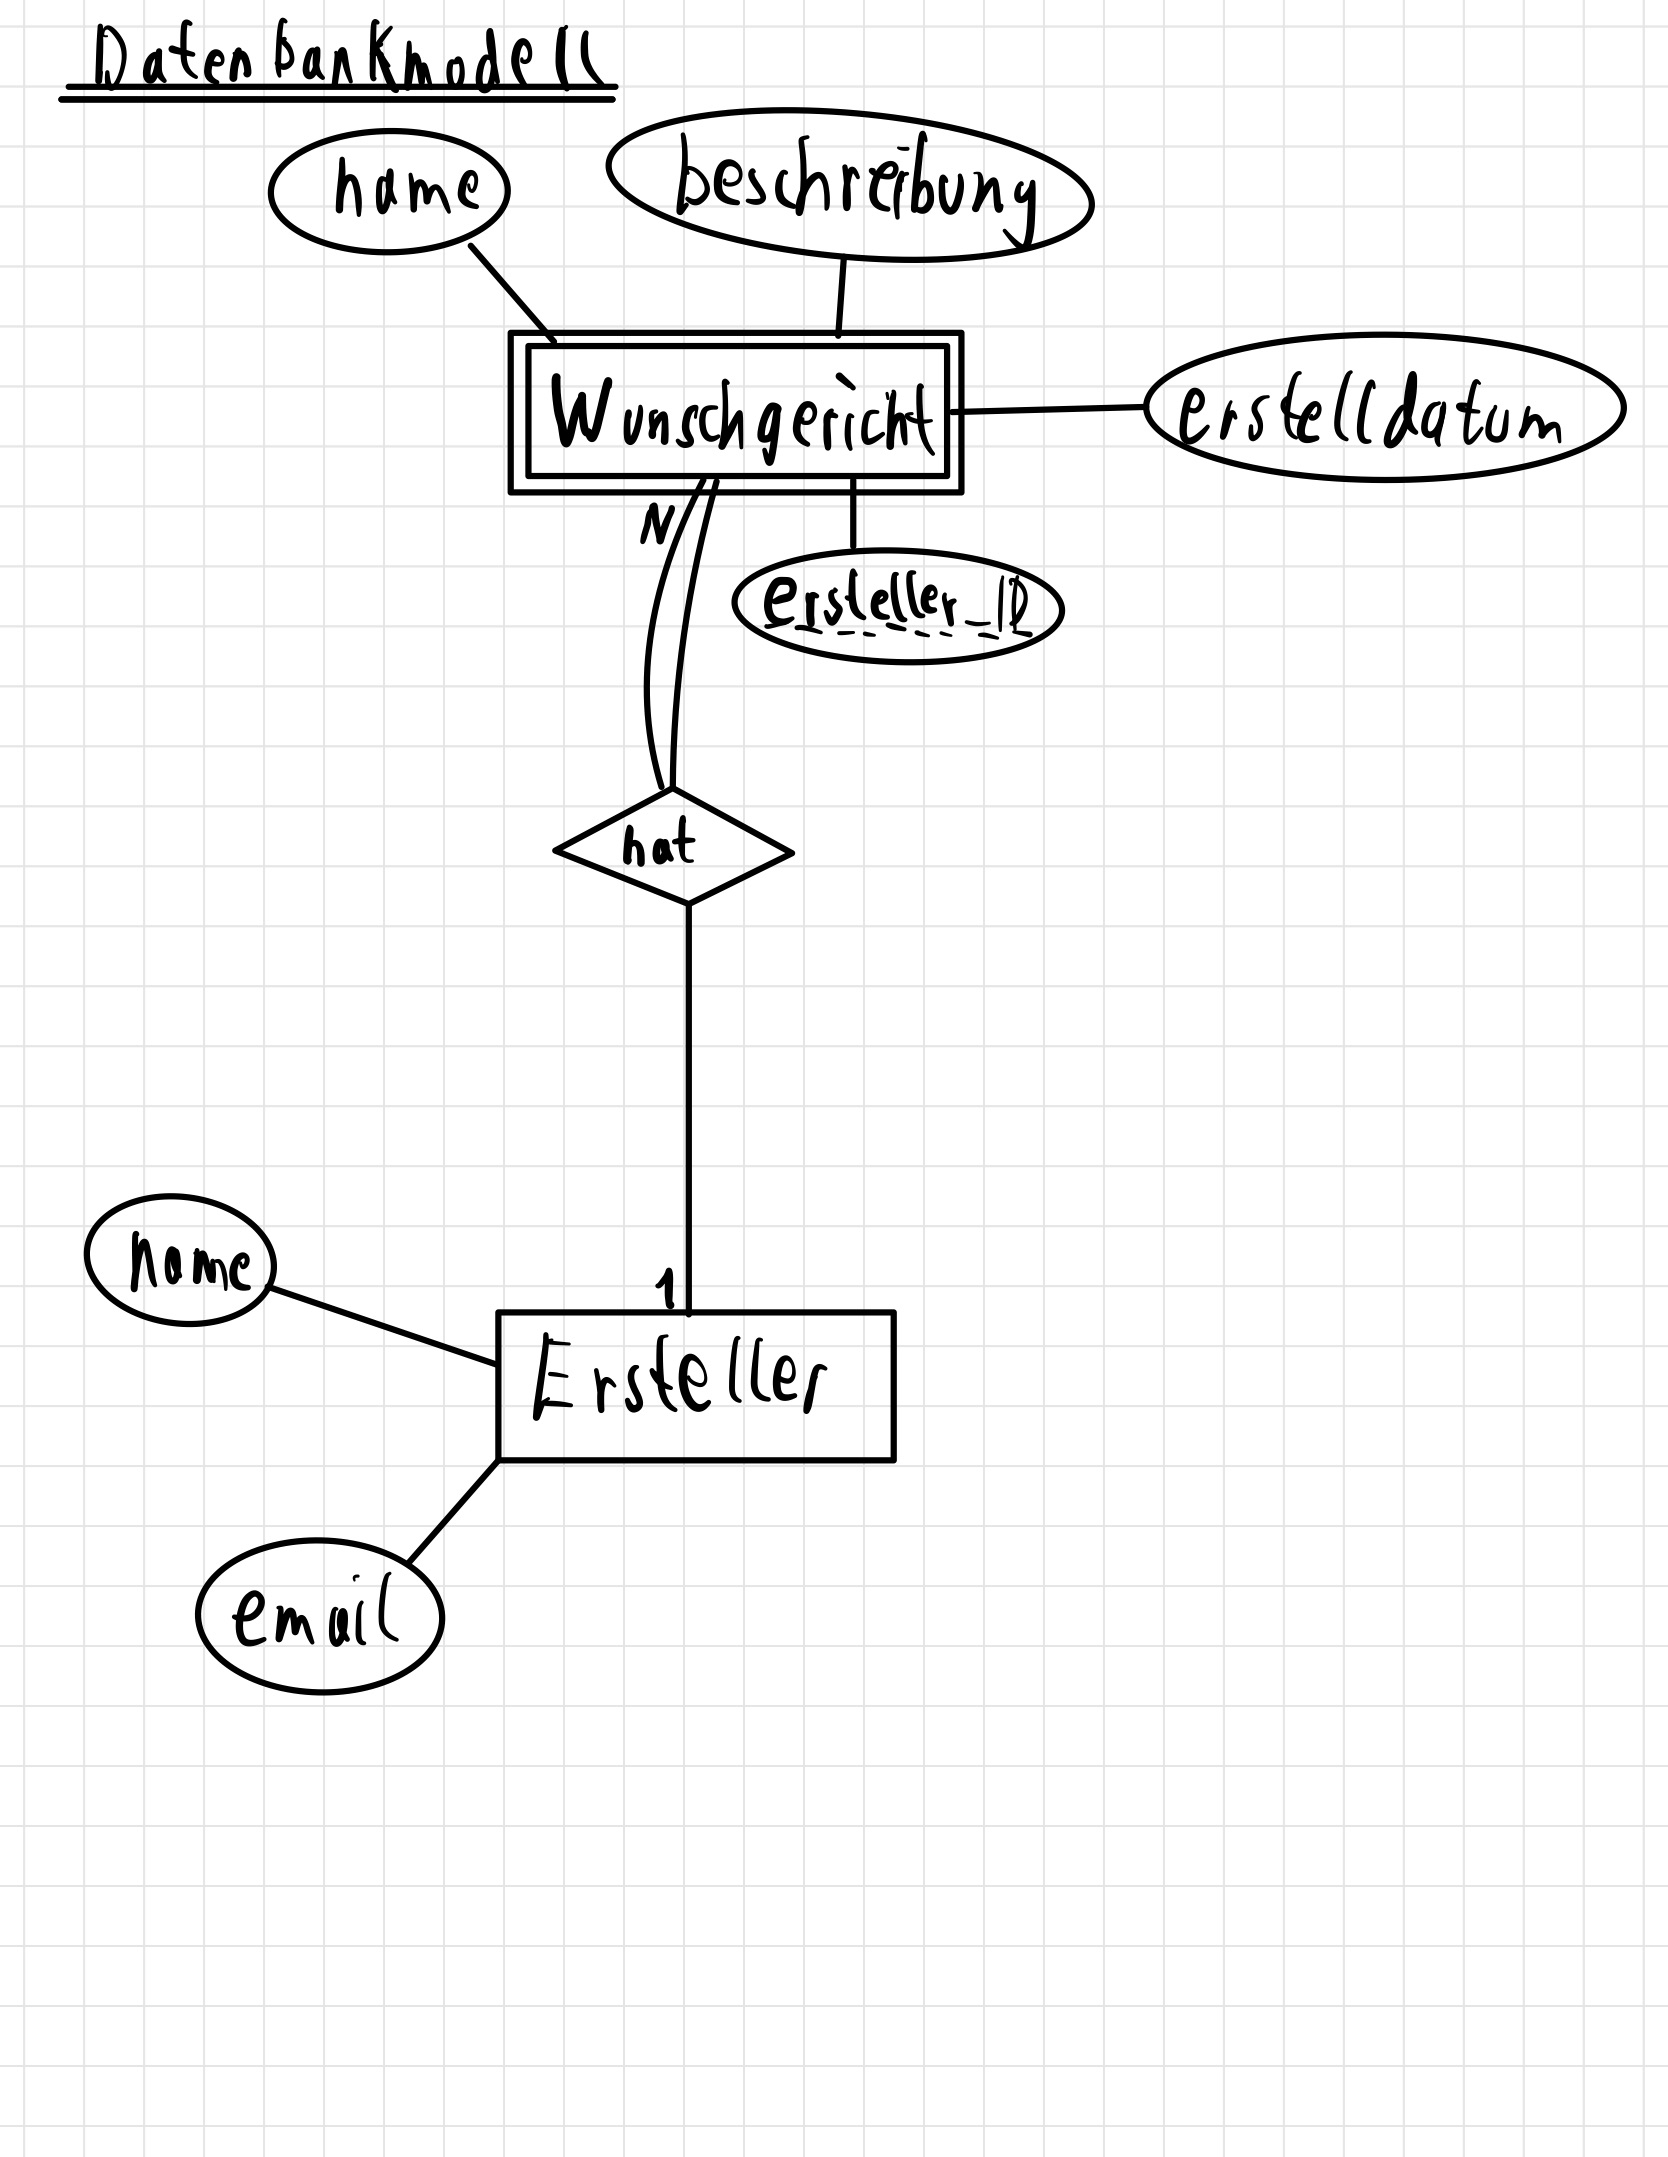 Datenbankmodell
name
beschreibung
Wunschgericht
erstelldatum
N
ersteller_ID
hat
name
1
Ersteller
email